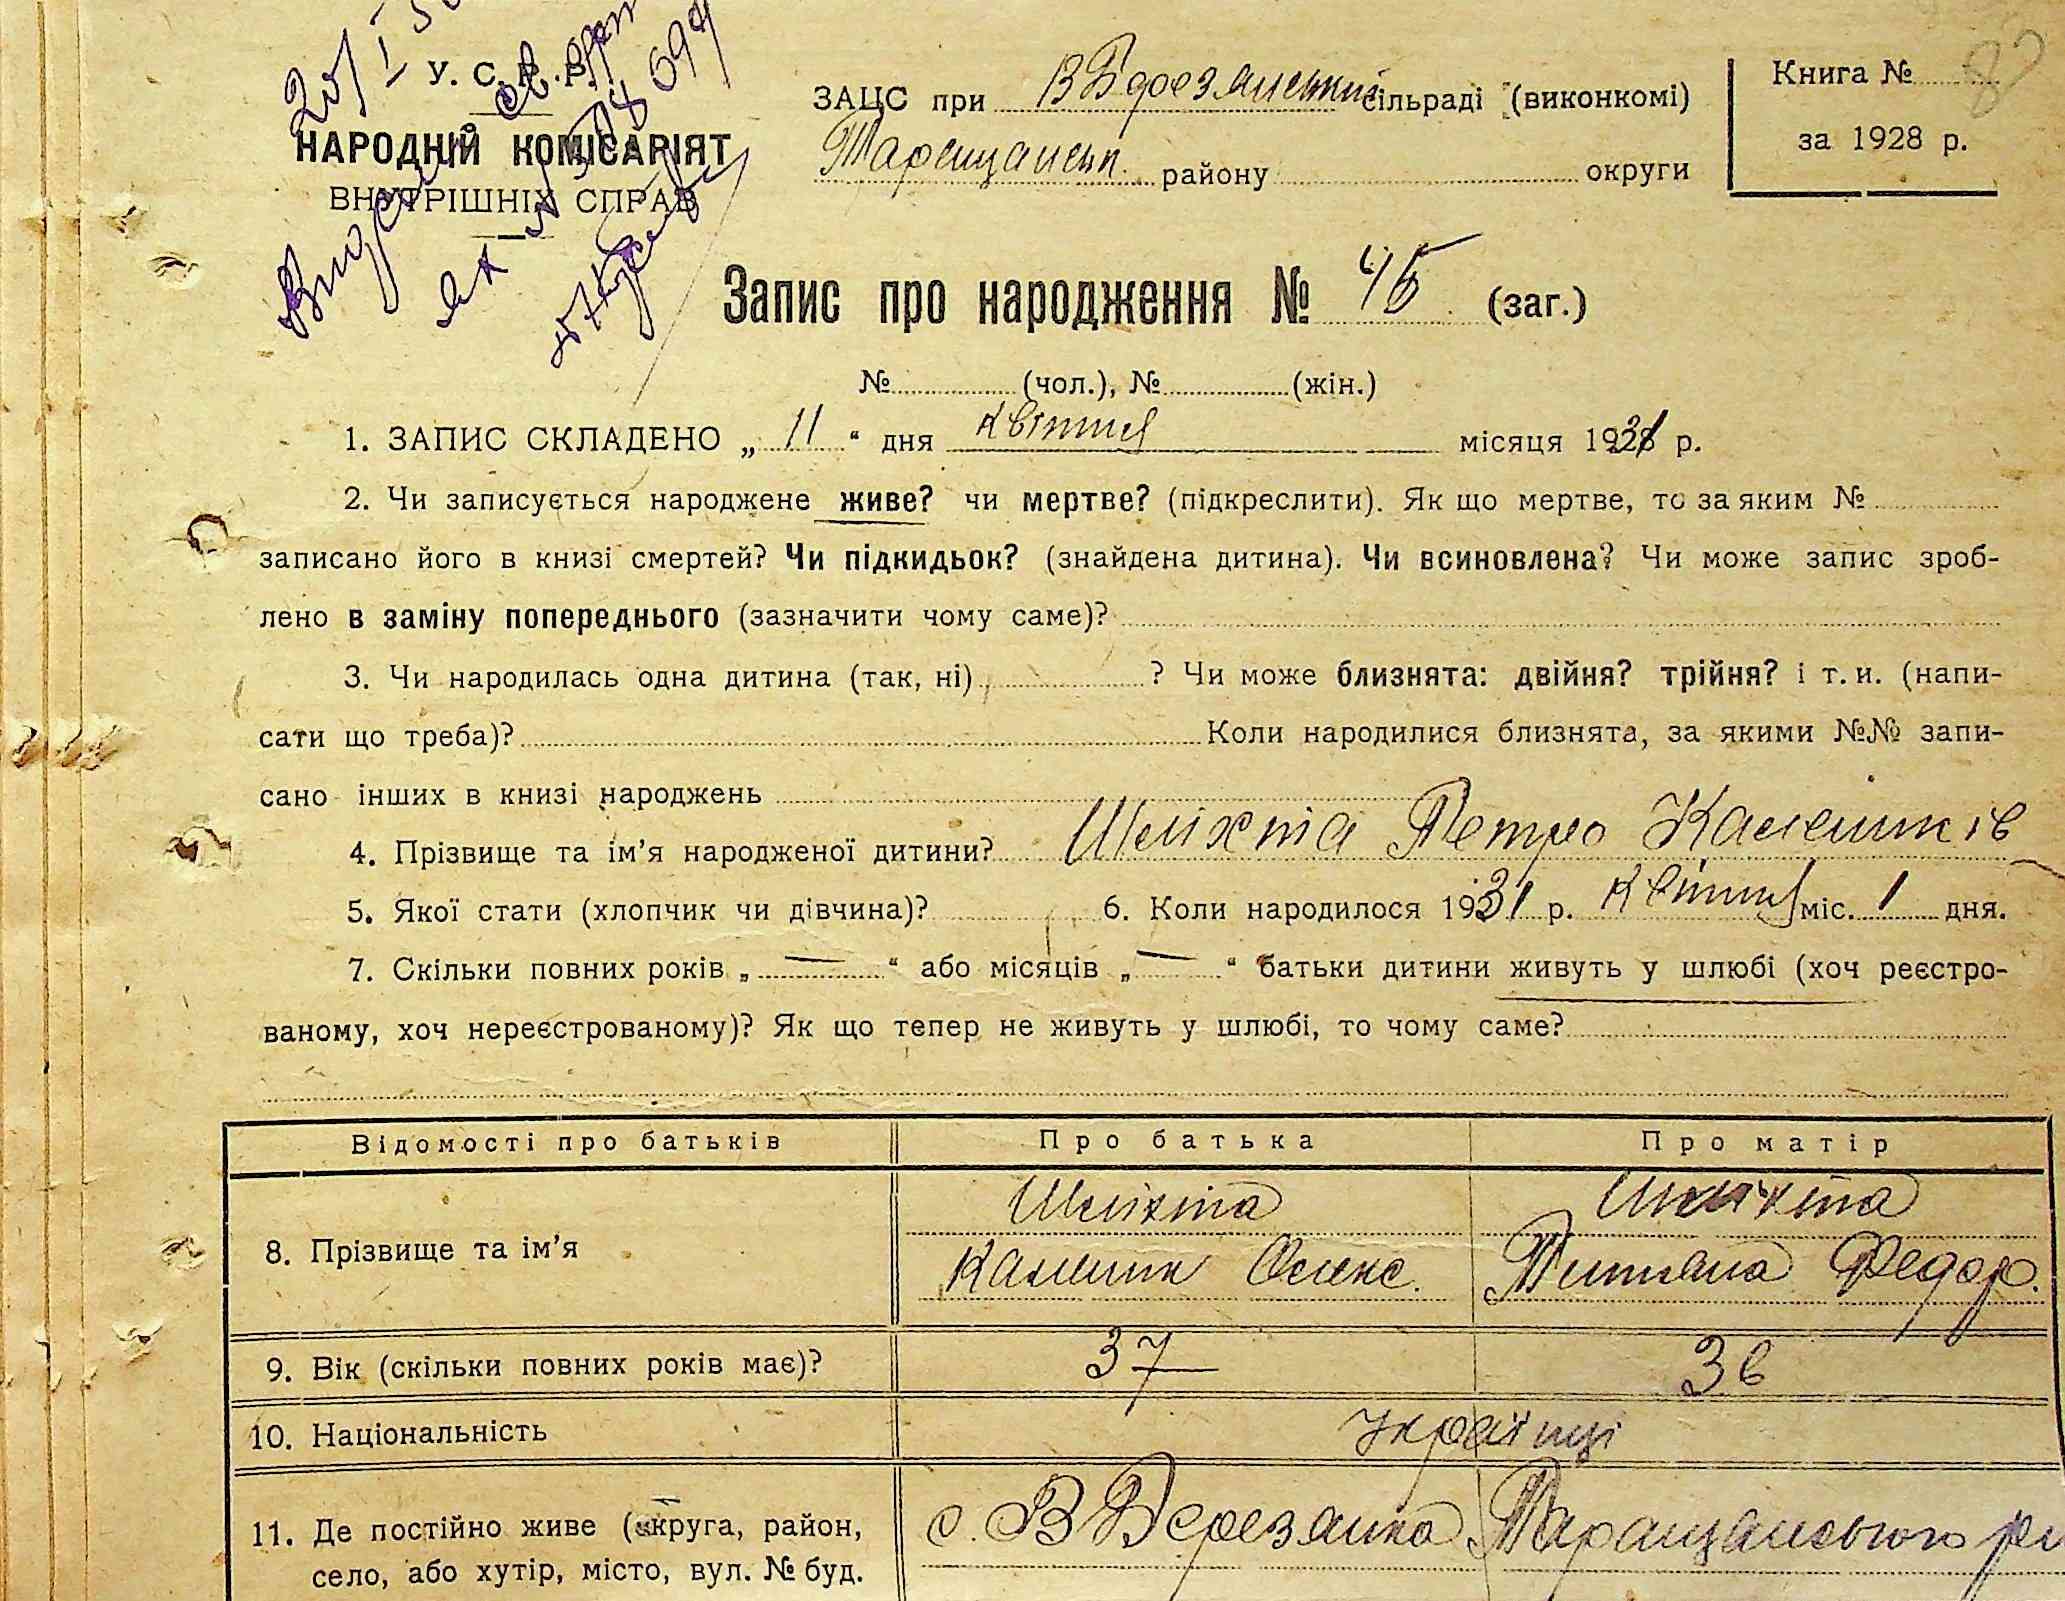 У. С. Р. Р.
НАРОДНІЙ КОМІСАРІЯТ
ВНУТРІШНІХ СПРАВ
ЗАЦС при В Березянській сільраді (виконкомі)
Таращанськ. району округи
Книга №
за 1928 р.
Запис про народження № 45 (заг.)
№ (чол.), № (жін.)
1. ЗАПИС СКЛАДЕНО „ 11 “ дня квітня місяця 1931 р.
2. Чи записується народжене живе? чи мертве? (підкреслити). Як що мертве, то за яким №
записано його в книзі смертей? Чи підкидьок? (знайдена дитина). Чи всиновлена? Чи може запис зроб-
лено в заміну попереднього (зазначити чому саме)?
3. Чи народилась одна дитина (так, ні) ? Чи може близнята: двійня? трійня? і т. и. (напи-
сати що треба)? Коли народилися близнята, за якими №№ запи-
сано інших в книзі народжень
4. Прізвище та ім’я народженої дитини? Шліхта Петро Калеників
5. Якої стати (хлопчик чи дівчина)? 6. Коли народилося 1931 р. квітня міс. 1 дня.
7. Скільки повних років „ — “ або місяців „ — “ батьки дитини живуть у шлюбі (хоч реєстро-
ваному, хоч нереєстрованому)? Як що тепер не живуть у шлюбі, то чому саме?
Відомості про батьків Про батька Про матір
8. Прізвище та ім’я
Шліхта
Каленик Олекс.
Шліхта
Титяна Федор.
9. Вік (скільки повних років має)? 37 36
10. Національність Українці
11. Де постійно живе (округа, район,
село, або хутір, місто, вул. № буд.
с. В Березянка Таращанського